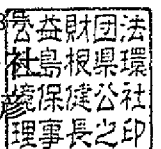 号
公益財団法
人島根県環
境保健公社
理事長之印
社
彦